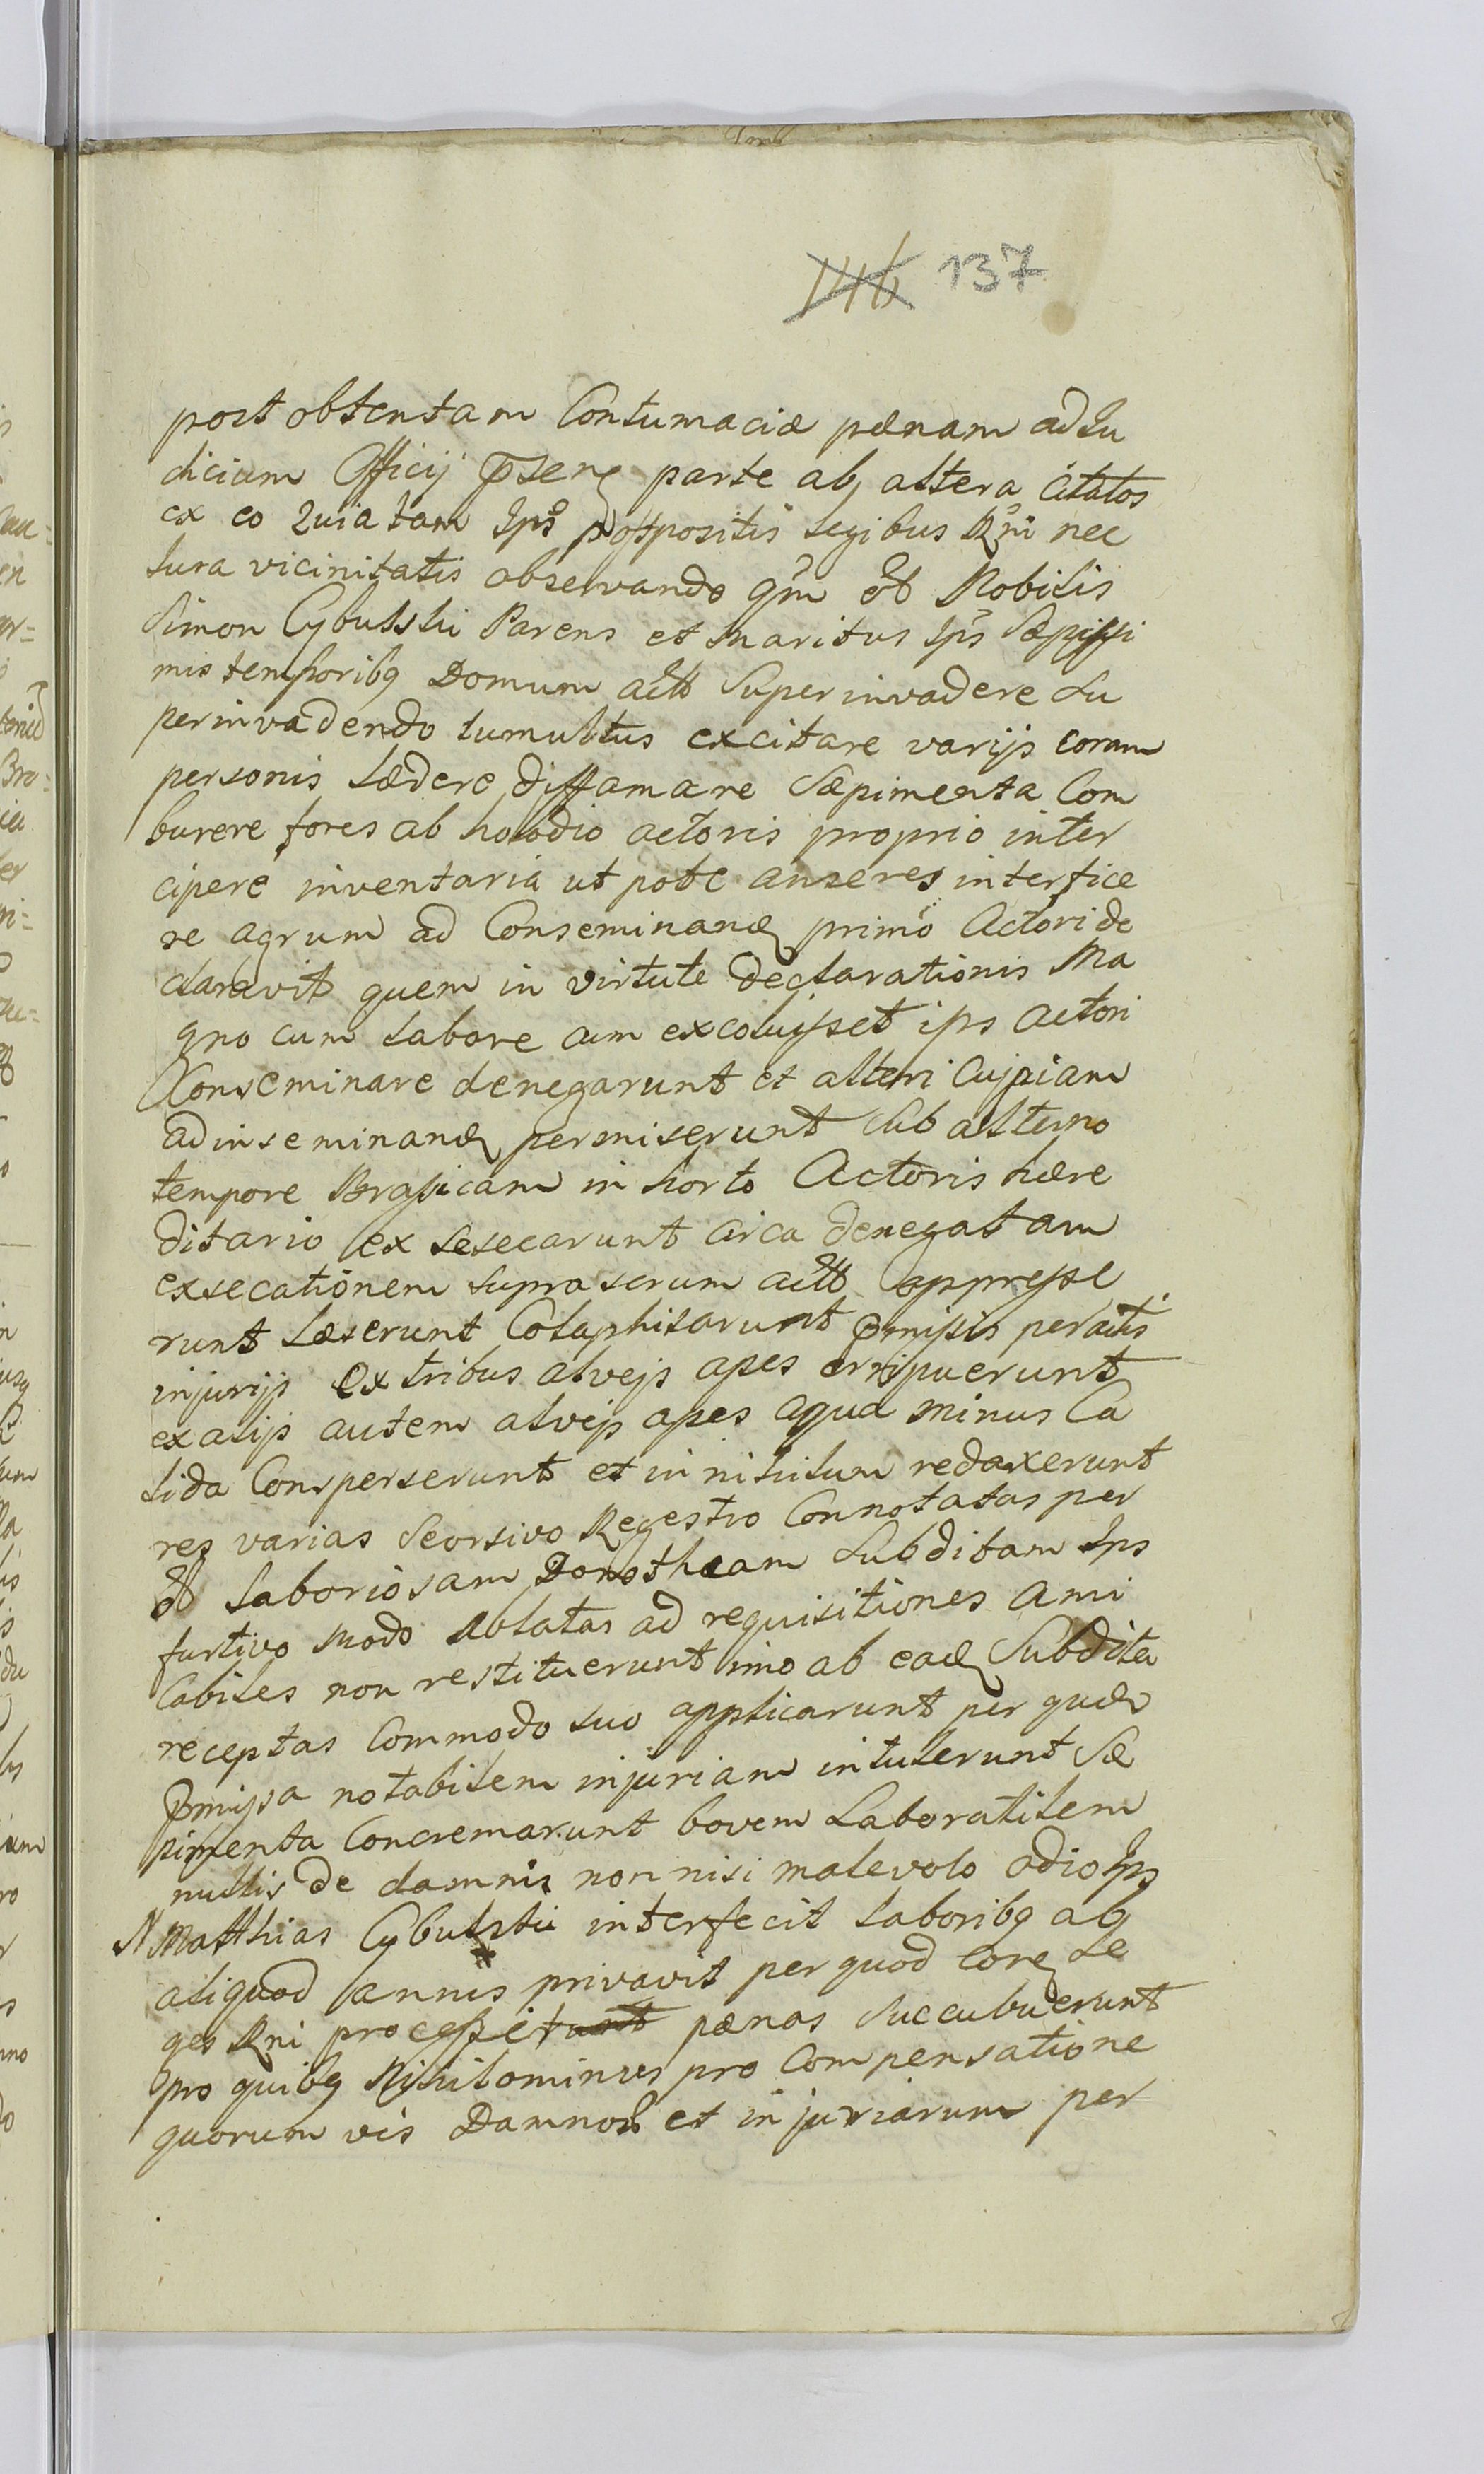 146 137
post obtentam Contumaciæ pænam ad Ju
dicium Officij p̅sens parte ab altera citatos
ex eo Quia tam Ips̃i postpositis legibus Rñi nec
Jura vicinitatis observando qm̃ et Nobilis
Simon Cybulski Parens et Maritus Ips̃ Sæpissi
mis temporibq Domum act Superinvadere Su
perinvadendo tumultus excitare varijs coram
personis lædere diffamare Sæpimenta Com
burere fores ab actoris proprio inter
cipere inventaria ut pote anseres interfice
re agrum ad Conseminand primo Actori de
claravit quem in virtute declarationis Ma
gno cum labore cum excoluisset ips actori
Conseminare denegarunt et alteri Cuipiam
ad inseminand permiserunt Sub alterno
tempore Brassicam in horto Actoris hære
ditario ex sesecarunt circa denegatam
exsecationem supra serum act oppresse
runt læserunt Colaphisarunt p̅missis peractis
injurijs Ex tribus alvejs apes erripuerunt
ex alijs autem alvejs apes aqua minus Ca
lida Consperserunt et in nihilum redaxerunt
res varias Seorsivo Regestro Connotatas per
et laboriosam Dorotheam Subditam Ips
furtivo modo Ablatas ad requisitiones ami
Cabiles non restituerunt imo ab ead Subdita
receptas Commodo suo applicarunt per quæ
p̅missa notabilem injuriam intulerunt Sæ
pimenta Concremarunt bovem Laboratilem
nullis de damnis non nisi malevolo odio Ips
N Matthias Cybulski interfecit laboribq ab
aliquod annis privavit per quod Contra Le
ges Rni processerunt pænas Succubuerunt
pro quibq Nihilominus pro Compensatione
quorum vis Damnor et injuriarum per